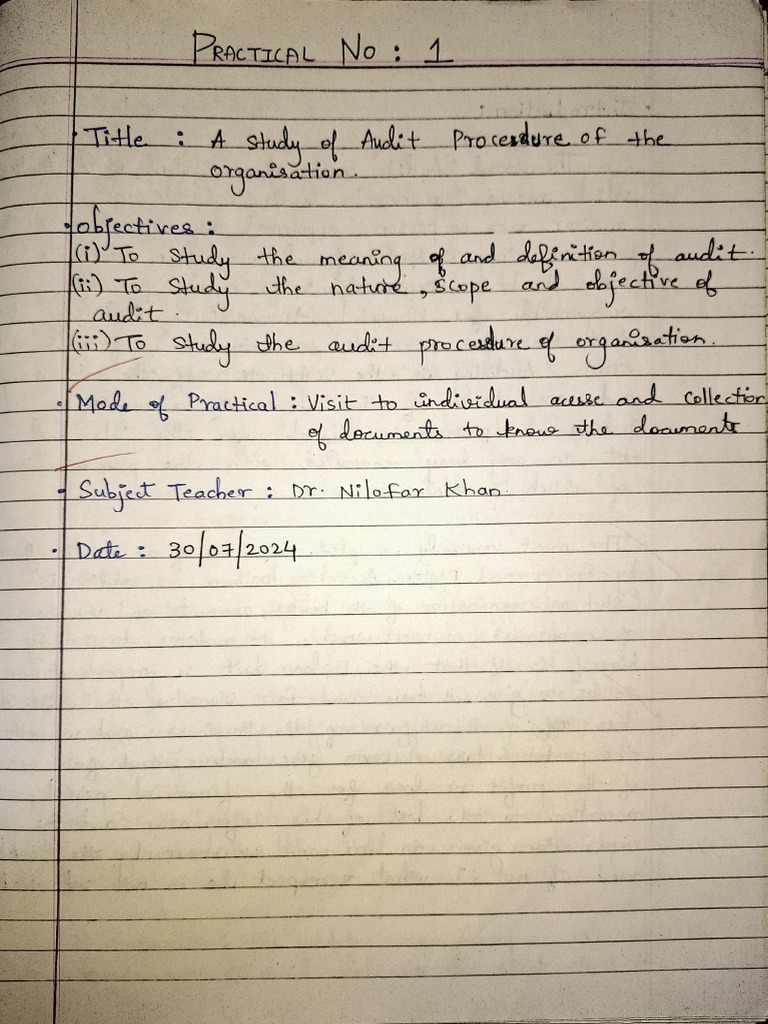 PRACTICAL NO : 1
Title : A study of Audit Procedure of the
organisation.
objectives :
(i) To study the meaning of and definition of audit.
(ii) To study the nature, scope and objective of
audit.
(iii) To study the audit procedure of organisation.
Mode of Practical : Visit to individual acesse and collection
of documents to know the documents
Subject Teacher : Dr. Nilofar Khan.
Date : 30/07/2024